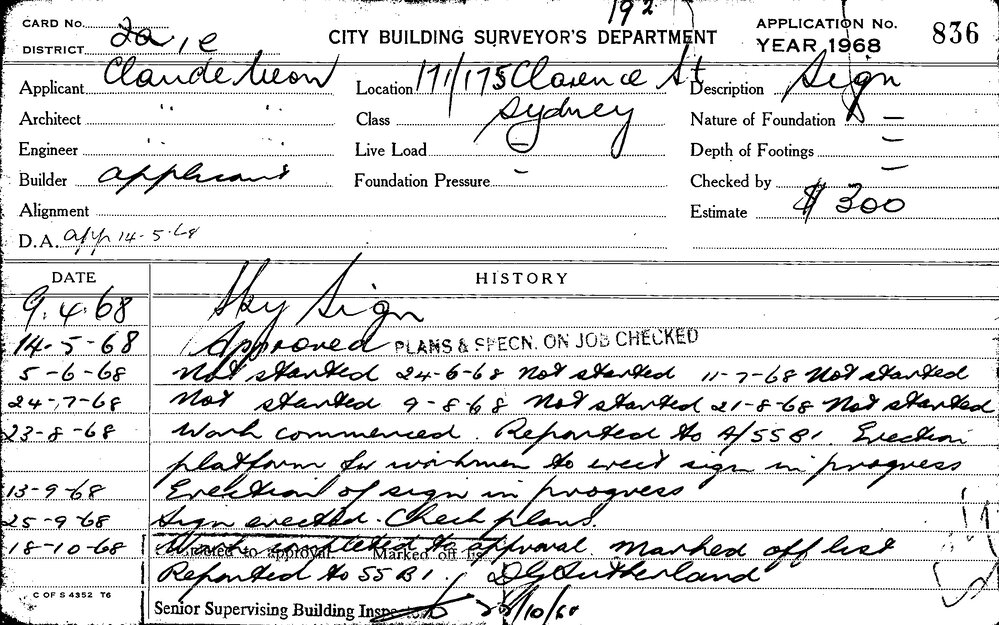 192
CARD No.
CITY BUILDING SURVEYOR'S DEPARTMENT
APPLICATION No. 836
DISTRICT 2a, e
YEAR 1968
Applicant Claude Neon
Location 171/175 Clarence St
Description Sign
Architect " "
Class Sydney
Nature of Foundation —
Engineer " "
Live Load —
Depth of Footings —
Builder applicant
Foundation Pressure -
Checked by —
Alignment
Estimate $ 300
D.A. app 14-5-68
DATE HISTORY
9.4.68 Sky Sign
14-5-68 Approved PLANS & SPECN. ON JOB CHECKED
5-6-68 Not started 24-6-68 Not started 11-7-68 Not started
24-7-68 Not started 9-8-68 Not started 21-8-68 Not started
23-8-68 Work commenced. Reported to A/SSBI. Erection
platform for workmen to erect sign in progress
13-9-68 Erection of sign in progress
25-9-68 Sign erected. Check plans.
18-10-68 Work completed to approval. Marked off list
Reported to SSBI. D G Sutherland
C OF S 4352 T6
Senior Supervising Building Inspector 22/10/68